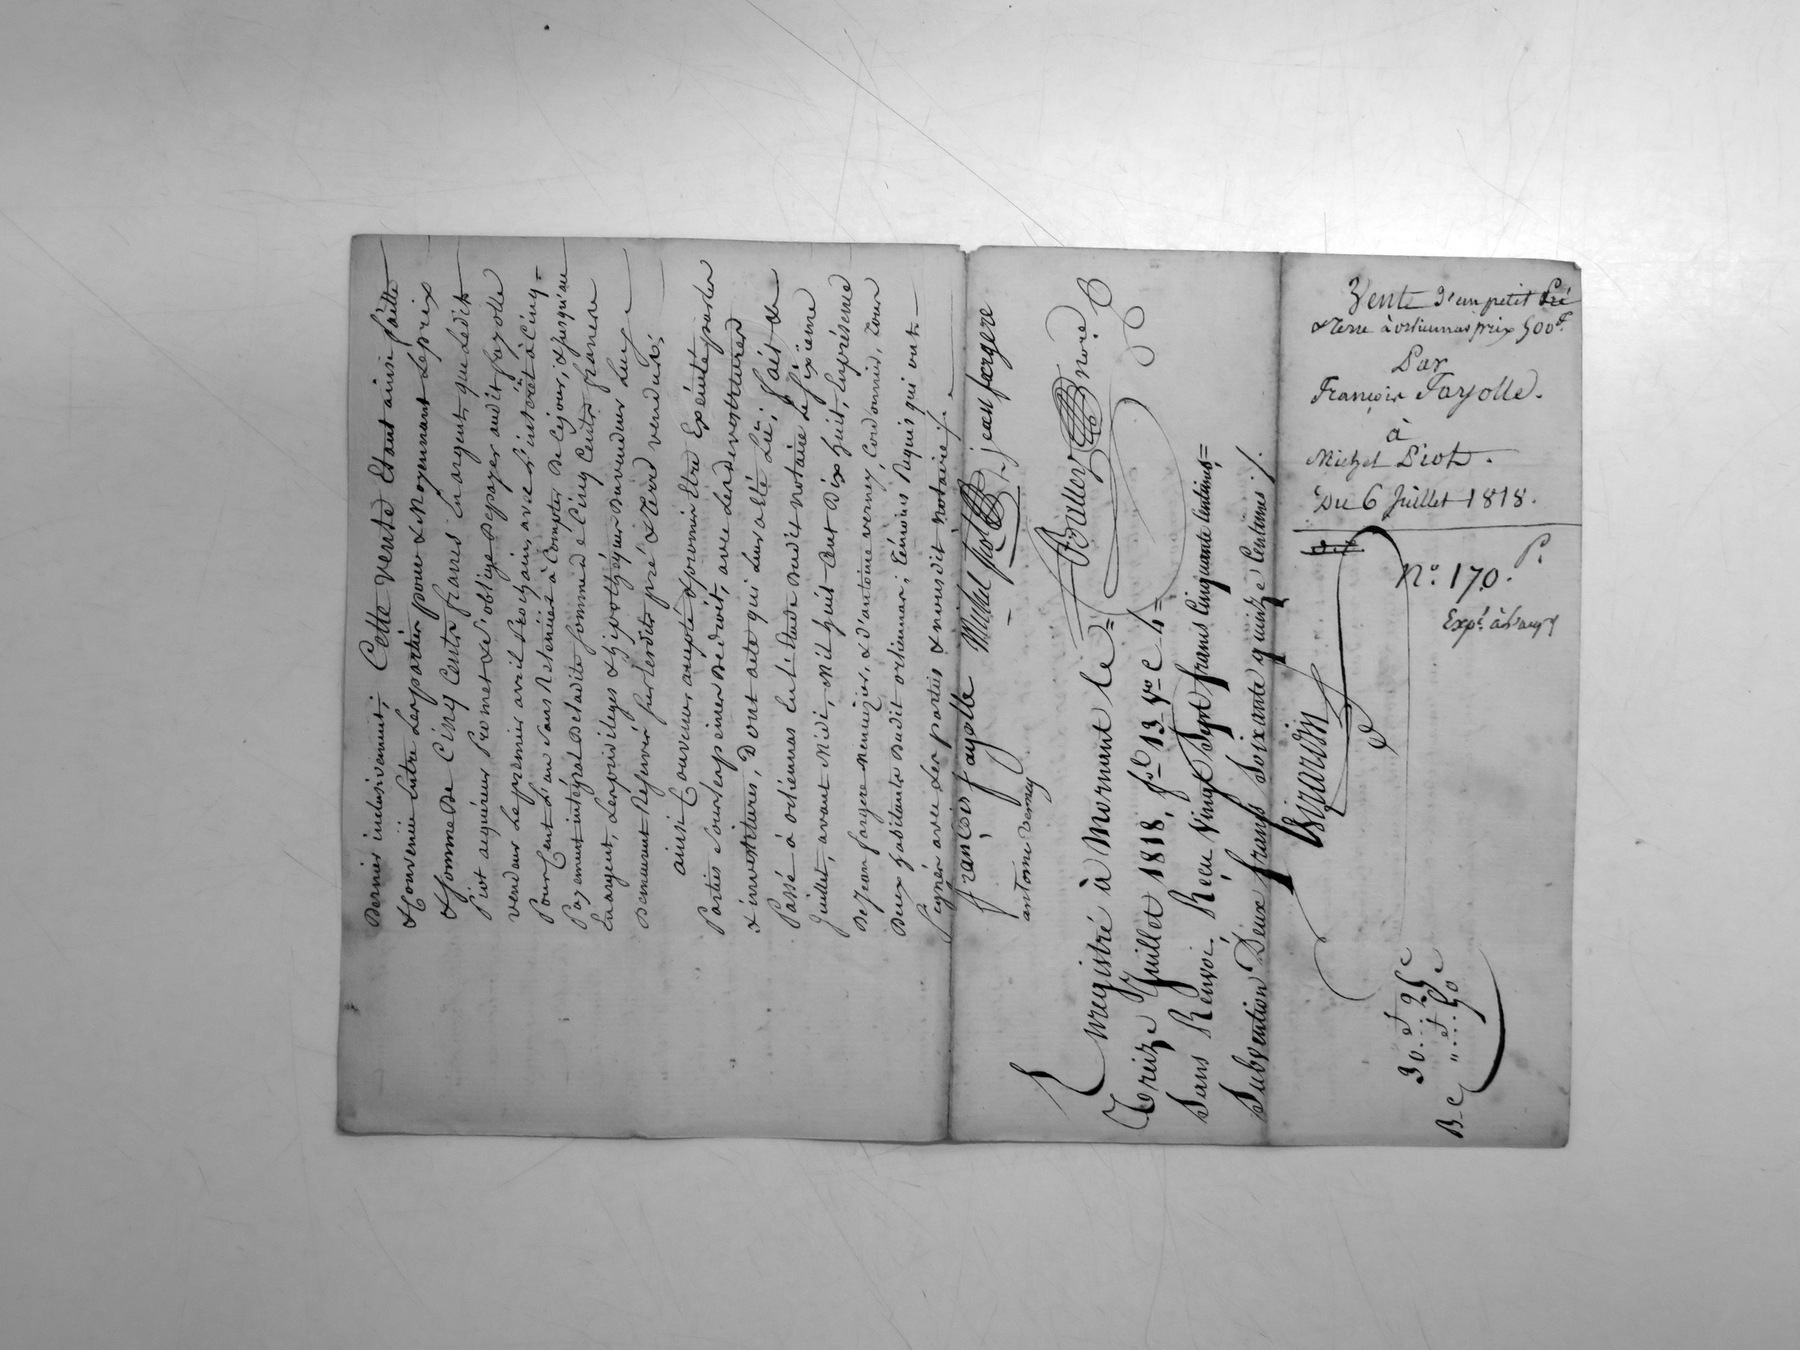 Dernier inclusivement; Cette vente Etant ainsi faitte
& Convenüe Entre les parties pour & Moyennant le prix
& Somme de Cinq Cents francs En argent, que ledit
Piot acquéreur Promet & s'oblige De payer audit fayolle
vendeur le premier avril Prochain, avec l'intérêt à Cinq
Pour Cent l'an Sans Retenüe à Compter De Ce jour, & jusqu'au
Payement intégral De ladite Somme de Cinq Cents francs
En argent, les privilèges & hipothèques Du vendeur luy
Demeurent Reservés sur lesdits pré & terre vendus;
ainsi Convenu, accepté & promis Etre Exécuté par les
Parties Sous les peines De droit, avec les devettures
& investitures, Dont acte qui leur a été Lü; fait &
Passé à orliennas En l'Etude Dudit Notaire le Sixième
Juillet, avant Midi, Mil huit Cent Dix huit, En présence
De Jean fargere Menuizier, & d'antoine verney, Cordonnier, tous
Deux habitants Dudit orliennas; témoins Requis qui ont
Signés avec les parties & nous dit Notaire ./.
françois fayolle Michel piot jean fargere
antoine verney
Enregistré à Mornant le
Treize Juillet 1818, f.o 13 v.o C 4
Sans Renvoi. Reçu Vingt Sept francs Cinquante Centimes,
Subvention Deux francs Soixante quinze Centimes ./.
Girardin
30..et 25 c
"..et..50 c
B. C
Vente D'un petit Pré
& Terre à orliennas prix 500 f.
Par
François Fayolle.
à
Michel Piot.
Du 6 Juillet 1818.
N.o 170. P.
Exp.é